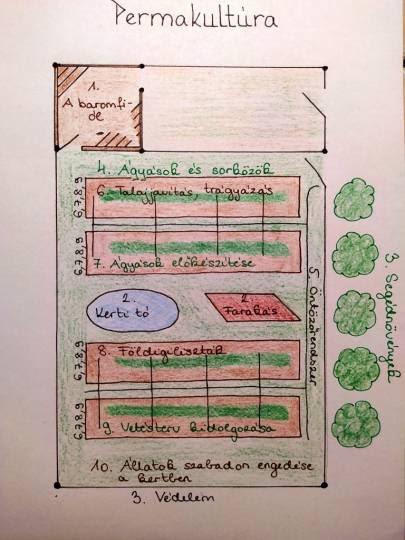 Permakultúra
1.
A baromfi-
de
4. Ágyások és sorközök
6. Talajjavítás, trágyázás
6,7,8,9
7. Ágyások előkészítése
6,7,8,9
2.
Kerti tó
2.
Farakás
5. Öntözőrendszer
3. Segédnövények
8. Földigiliszták
6,7,8,9
9. Vetésterv kidolgozása
6,7,8,9
10. Állatok szabadon engedése
a kertben
3. Védelem